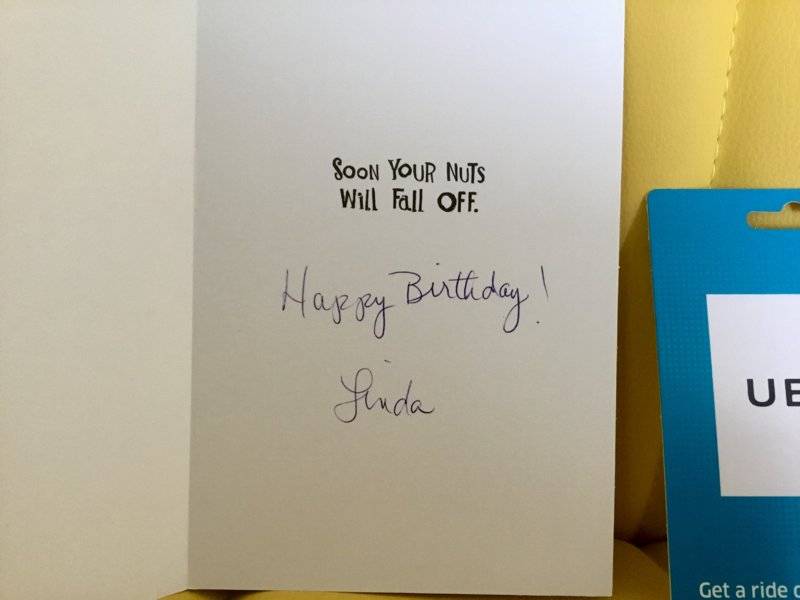 SOON YOUR NUTS
WILL FALL OFF.
Happy Birthday!
Linda
UB
Get a ride